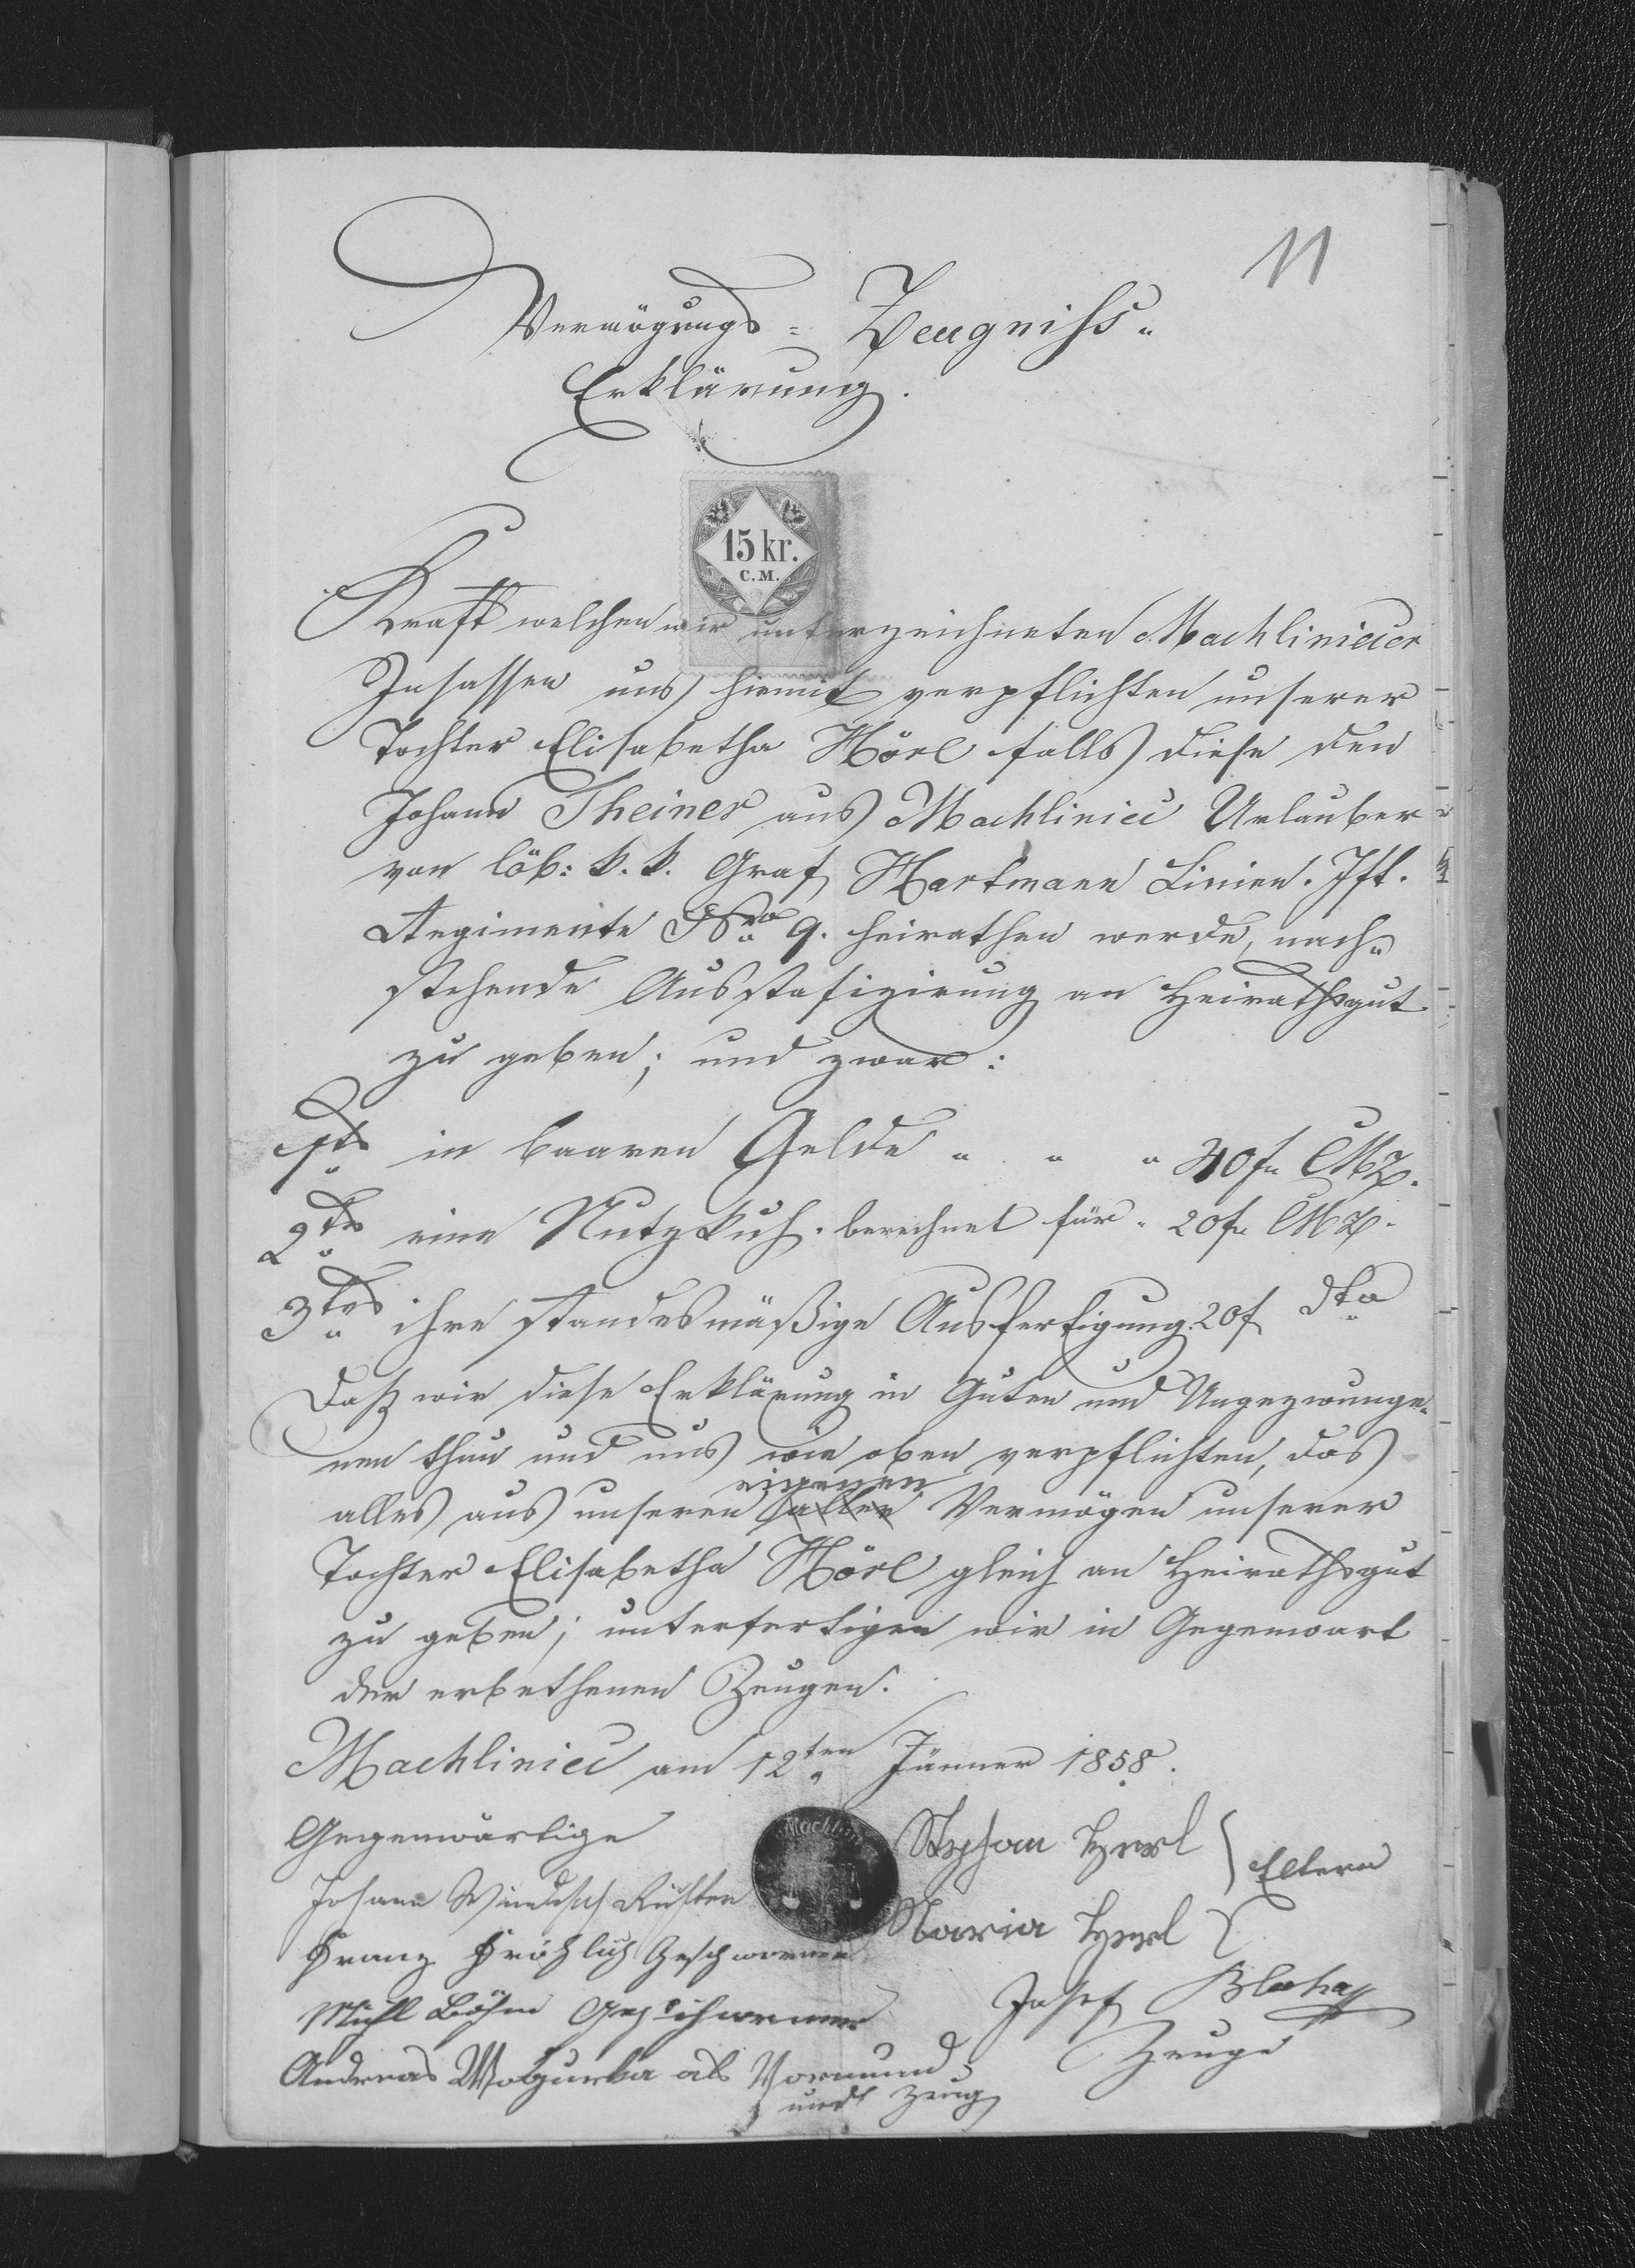 11
Vermögungs= Zeugniss"
Erklärung.
15 kr.
C.M.
Kraft welchen wir unterzeichneten Machliniecer
Insassen uns hiemit verpflichten unserer
Tochter Elisabetha Hörl falls diese den
Johann Theiner aus Machliniec Urlauber
von löb: k. k. Graf Hartmann Linien. Ift.
Regimente Nro 9. heirathen werde, nach"
stehende Ausstafizirung an Heirathsgut
zu geben; und zwar:
1tes in baaren Gelde " " " 40 f" CMz.
2tes eine Nutzkuh. berechnet für " 20 f" CMz.
3tes ihre standesmäßige Ausfertigung 20 f dto
Daß wir diese Erklärung in Guten und Ungezwunge"
nen thun und uns wie oben verpflichten, das
eigenen
alles aus unseren allen Vermögen unserer
Tochter Elisabetha Hörl gleich an Heirathsgut
zu geben; unterfertigen wir in Gegenwart
der erbethenen Zeugen.
Machliniec am 12ten Jänner 1858.
Gegenwärtige
Stephan Herl
Eltern
Johann Windisch Richter
Maria Herl
Franz Fröhlich Geschworner
Michl Böhm Geschworner
Josef Blaha
Zeuge
Andreas als Vormund
und Zeug